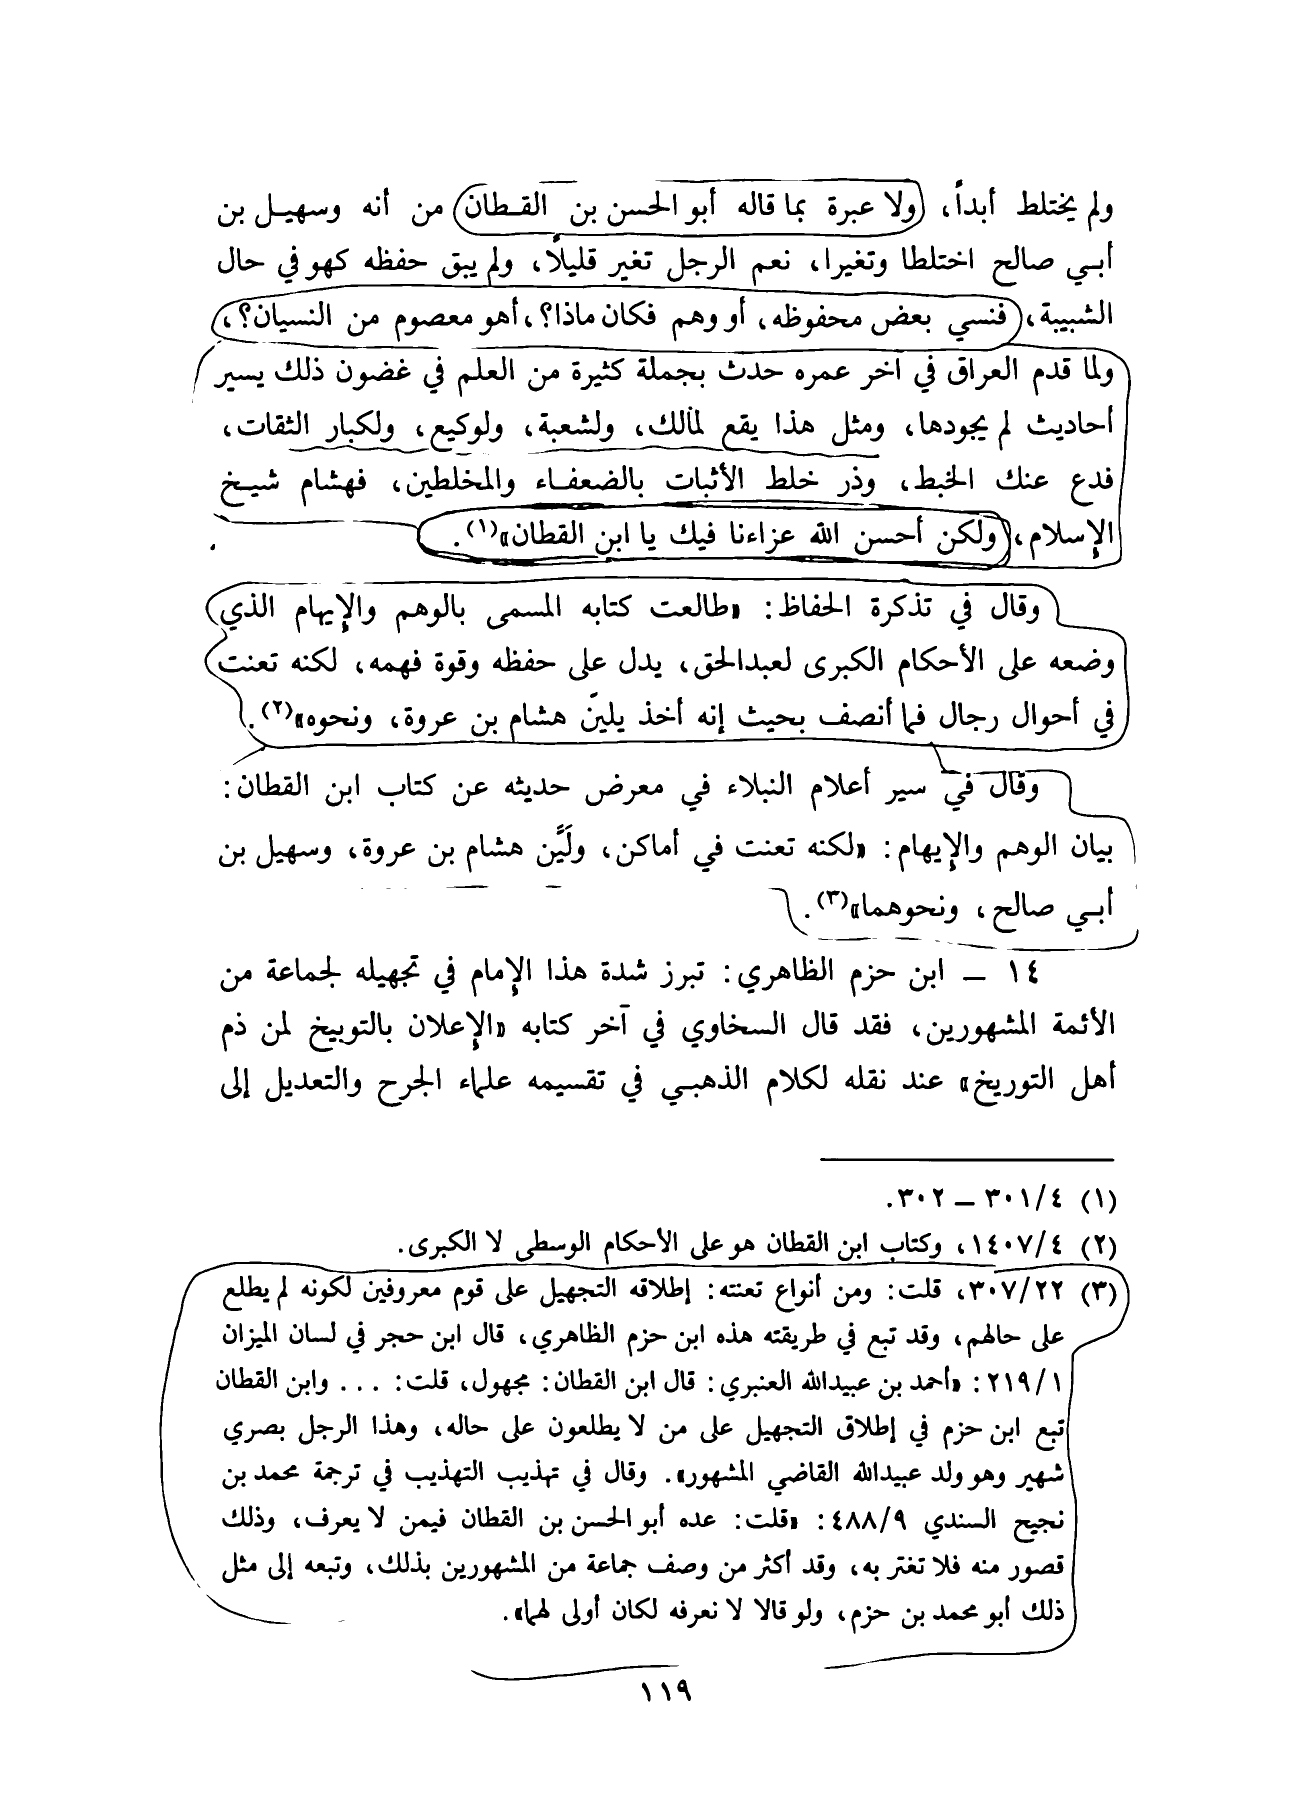 ولم يختلط أبداً، ولا عبرة بما قاله أبو الحسن بن القـطان من أنه وسهيـل بن
أبـي صالح اختلطا وتغيرا، نعم الرجل تغير قليلًا، ولم يبق حفظه كهو في حال
الشبيبة، فنسي بعض محفوظه، أو وهم فكان ماذا؟، أهو معصوم من النسيان؟،
ولما قدم العراق في آخر عمره حدث بجملة كثيرة من العلم في غضون ذلك يسير
أحاديث لم يجودها، ومثل هذا يقع لمالك، ولشعبة، ولوكيع، ولكبار الثقات،
فدع عنك الخبط، وذر خلط الأثبات بالضعفـاء والمخلطين، فهشام شيـخ
الإسلام، ولكن أحسن الله عزاءنا فيك يا ابن القطان»(١).
وقال في تذكرة الحفاظ: «طالعت كتابه المسمى بالوهم والإيهام الذي
وضعه على الأحكام الكبرى لعبدالحق، يدل على حفظه وقوة فهمه، لكنه تعنت
في أحوال رجال فما أنصف بحيث إنه أخذ يلينّ هشام بن عروة، ونحوه»(٢).
وقال في سير أعلام النبلاء في معرض حديثه عن كتاب ابن القطان:
بيان الوهم والإيهام: «لكنه تعنت في أماكن، ولَيَّن هشام بن عروة، وسهيل بن
أبـي صالح، ونحوهما»(٣).
١٤ ــ ابن حزم الظاهري: تبرز شدة هذا الإمام في تجهيله لجماعة من
الأئمة المشهورين، فقد قال السخاوي في آخر كتابه «الإعلان بالتوبيخ لمن ذم
أهل التوريخ» عند نقله لكلام الذهبـي في تقسيمه علماء الجرح والتعديل إلى
(١) ٣٠١/٤ ــ ٣٠٢.
(٢) ١٤٠٧/٤، وكتاب ابن القطان هو على الأحكام الوسطى لا الكبرى.
(٣) ٣٠٧/٢٢، قلت: ومن أنواع تعنته: إطلاقه التجهيل على قوم معروفين لكونه لم يطلع
على حالهم، وقد تبع في طريقته هذه ابن حزم الظاهري، قال ابن حجر في لسان الميزان
٢١٩/١: «أحمد بن عبيدالله العنبري: قال ابن القطان: مجهول، قلت: ... وابن القطان
تبع ابن حزم في إطلاق التجهيل على من لا يطلعون على حاله، وهذا الرجل بصري
شهير وهو ولد عبيدالله القاضي المشهور». وقال في تهذيب التهذيب في ترجمة محمد بن
نجيح السندي ٤٨٨/٩: «قلت: عده أبو الحسن بن القطان فيمن لا يعرف، وذلك
قصور منه فلا تغتر به، وقد أكثر من وصف جماعة من المشهورين بذلك، وتبعه إلى مثل
ذلك أبو محمد بن حزم، ولو قالا لا نعرفه لكان أولى لهما».
١١٩